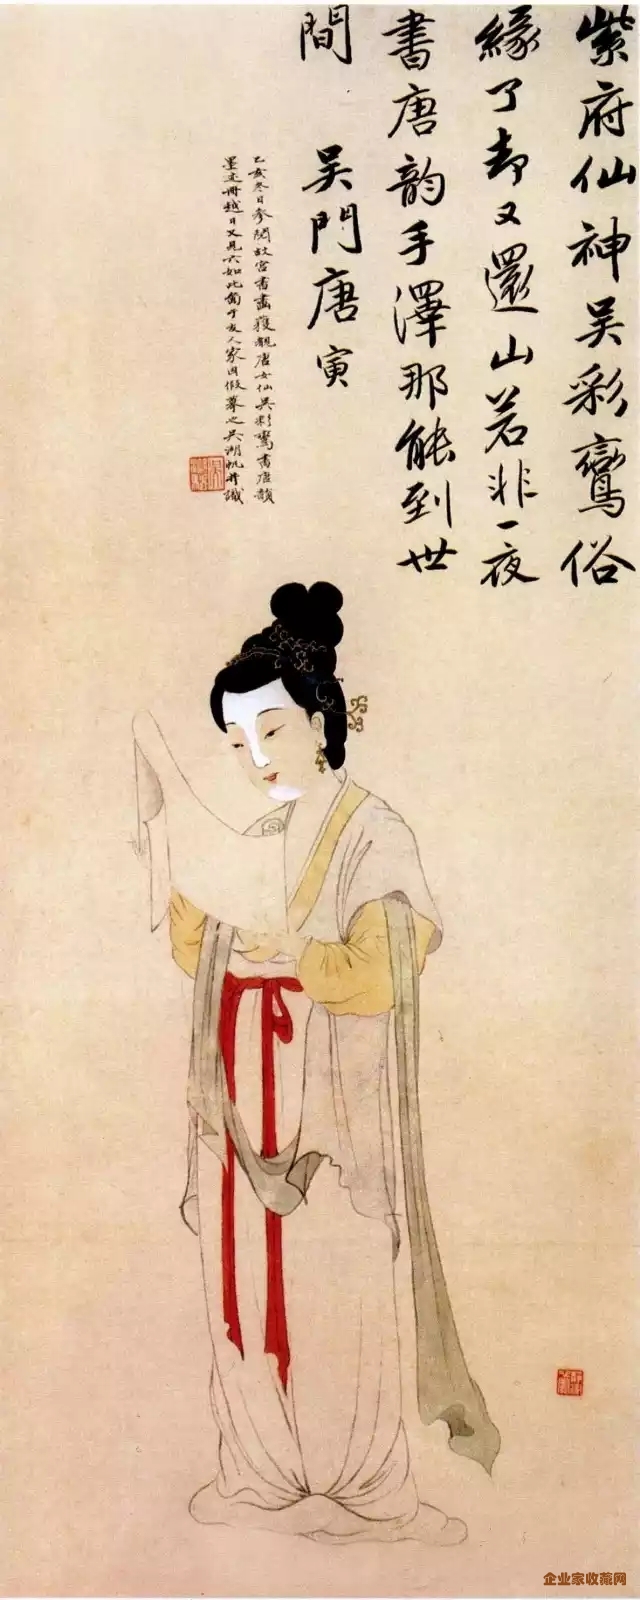 紫府仙神吴彩鸾俗
緣了却又還山若非一夜
書唐韵手澤那能到世
間
吴門唐寅
乙亥冬日參閲故宫書畫獲觀唐女仙吴彩鸞書唐韻
墨迹冊越日又見六如此圖于友人家因假摹之吴湖帆并識
企业家收藏网